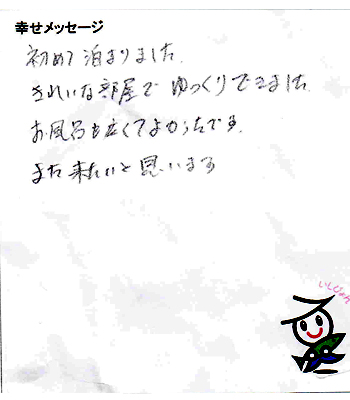 幸せメッセージ
初めて泊まりました。
きれいな部屋でゆっくりできました。
お風呂も広くてよかったです。
また来たいと思います